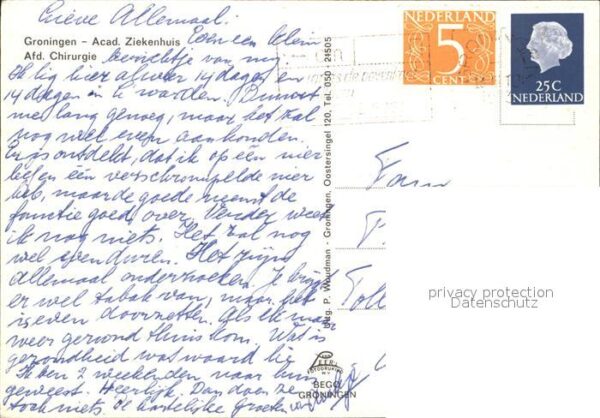 Lieve Allemaal.
Groningen - Acad. Ziekenhuis
Afd. Chirurgie
Even een klein
berichtje van mij
Ik lig hier al weer 14 dagen en
14 dagen in te worden.
me lang genoeg, maar het zal
nog wel even aanhouden.
Er is ontdekt, dat ik op één nier
leef en één verschrompelde nier
heb, maar de goede neemt de
functie goed over. Verder weet
ik nog niets. Het zal nog
wel even duren. Het zijn
allemaal onderzoeken. Je krijgt
er wel tabak van, maar het
is even doorzetten. Als ik maar
weer gezond thuis kom. Wat is
gezondheid wat waard hè
Ik ben 2 weekenden naar huis
geweest. Heerlijk. Dan doen ze
toch niets. De hartelijke groeten
Uitg. P. Woudman - Groningen, Oosterstngel 120, Tel. 050 - 24505
NEDERLAND
5
CENT
25C
NEDERLAND
Fam
T.
Toll
privacy protection
Datenschutz
BEGO
GRONINGEN